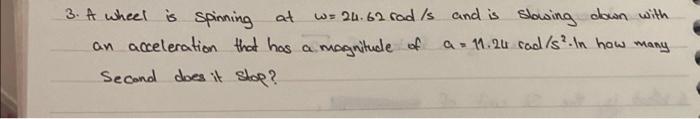 3. A wheel is spinning at ω= 24.62 rad /s and is slowing down with
an acceleration that has a magnitude of a = 11.24 rad/s². In how many
Second does it stop?